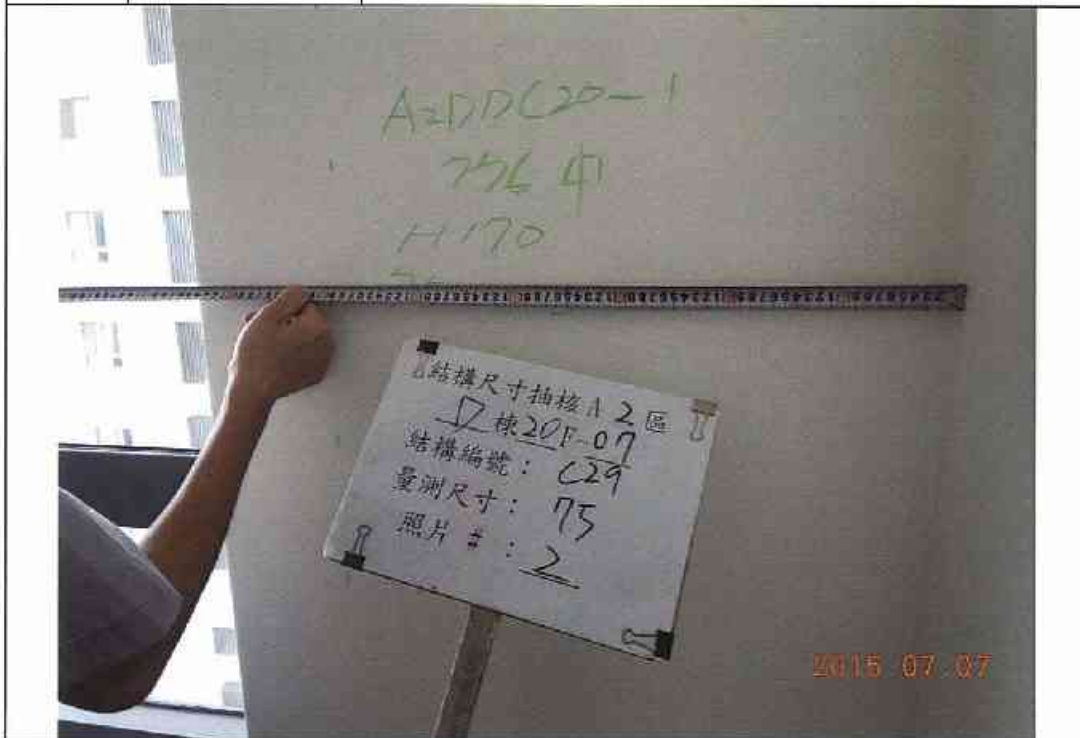 A2DDC20-1
H170
結構尺寸抽核A2區
D棟20F-07
結構編號：C29
量測尺寸：75
照片#：2
2015 07 07